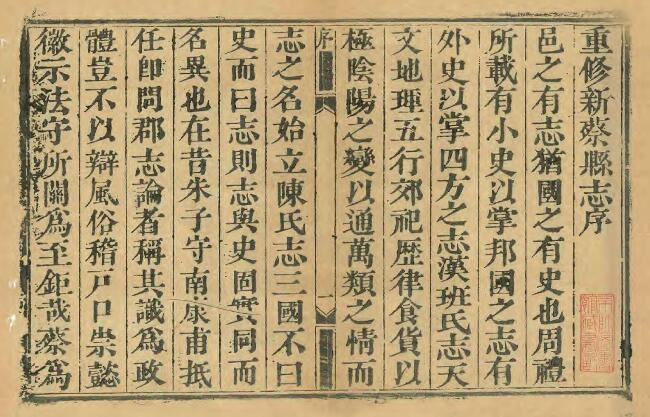 重修新蔡縣志序
邑之有志猶國之有史也周禮
所載有小史以掌邦國之志有
外史以掌四方之志漢班氏志天
文地理五行郊祀歷律食貨以
極陰陽之變以通萬類之情而
序
一
志之名始立陳氏志三國不曰
史而曰志則志與史固實同而
名異也在昔朱子守南康甫抵
任卽問郡志論者稱其識爲政
體豈不以辯風俗稽戶口崇懿
徽示法守所關爲至鉅哉蔡爲